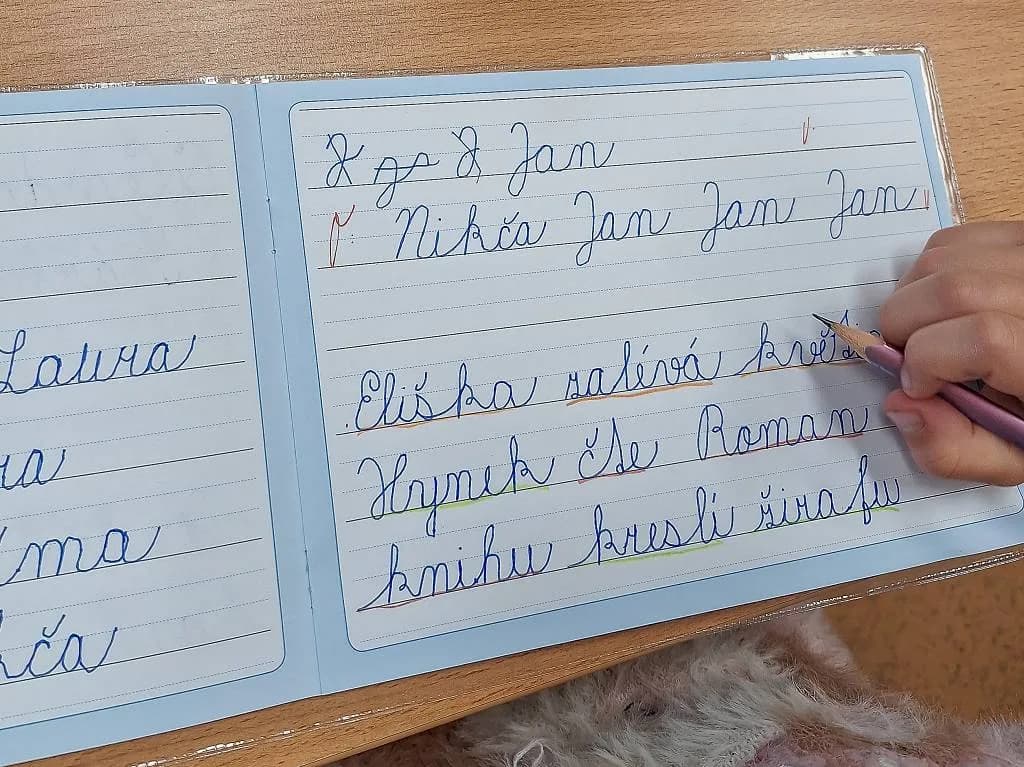 Laura
Jan
Nikča Jan Jan Jan
Eliška zalévá
Hynek čte Roman
knihu kreslí žirafu